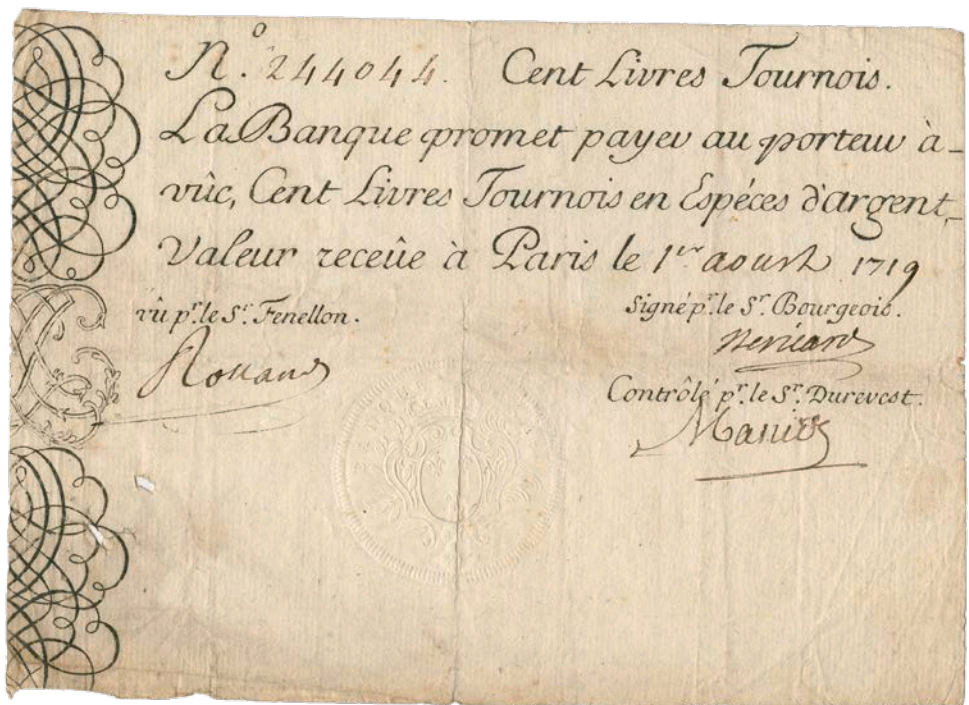 N.º 244044. Cent Livres Tournois.
La Banque promet payer au porteur à
vûe, Cent Livres Tournois en Espéces d'argent,
Valeur receüe à Paris le 1er aoust 1719
vû pr. le Sr. Fenellon.
Signé pr. le Sr. Bourgeois.
Contrôlé pr. le Sr. Durevest.